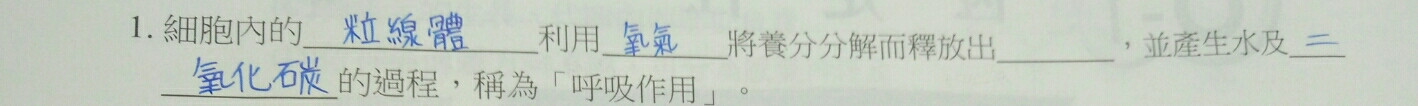 1. 細胞內的粒線體利用氧氣將養分分解而釋放出______，並產生水及二
氧化碳的過程，稱為「呼吸作用」。